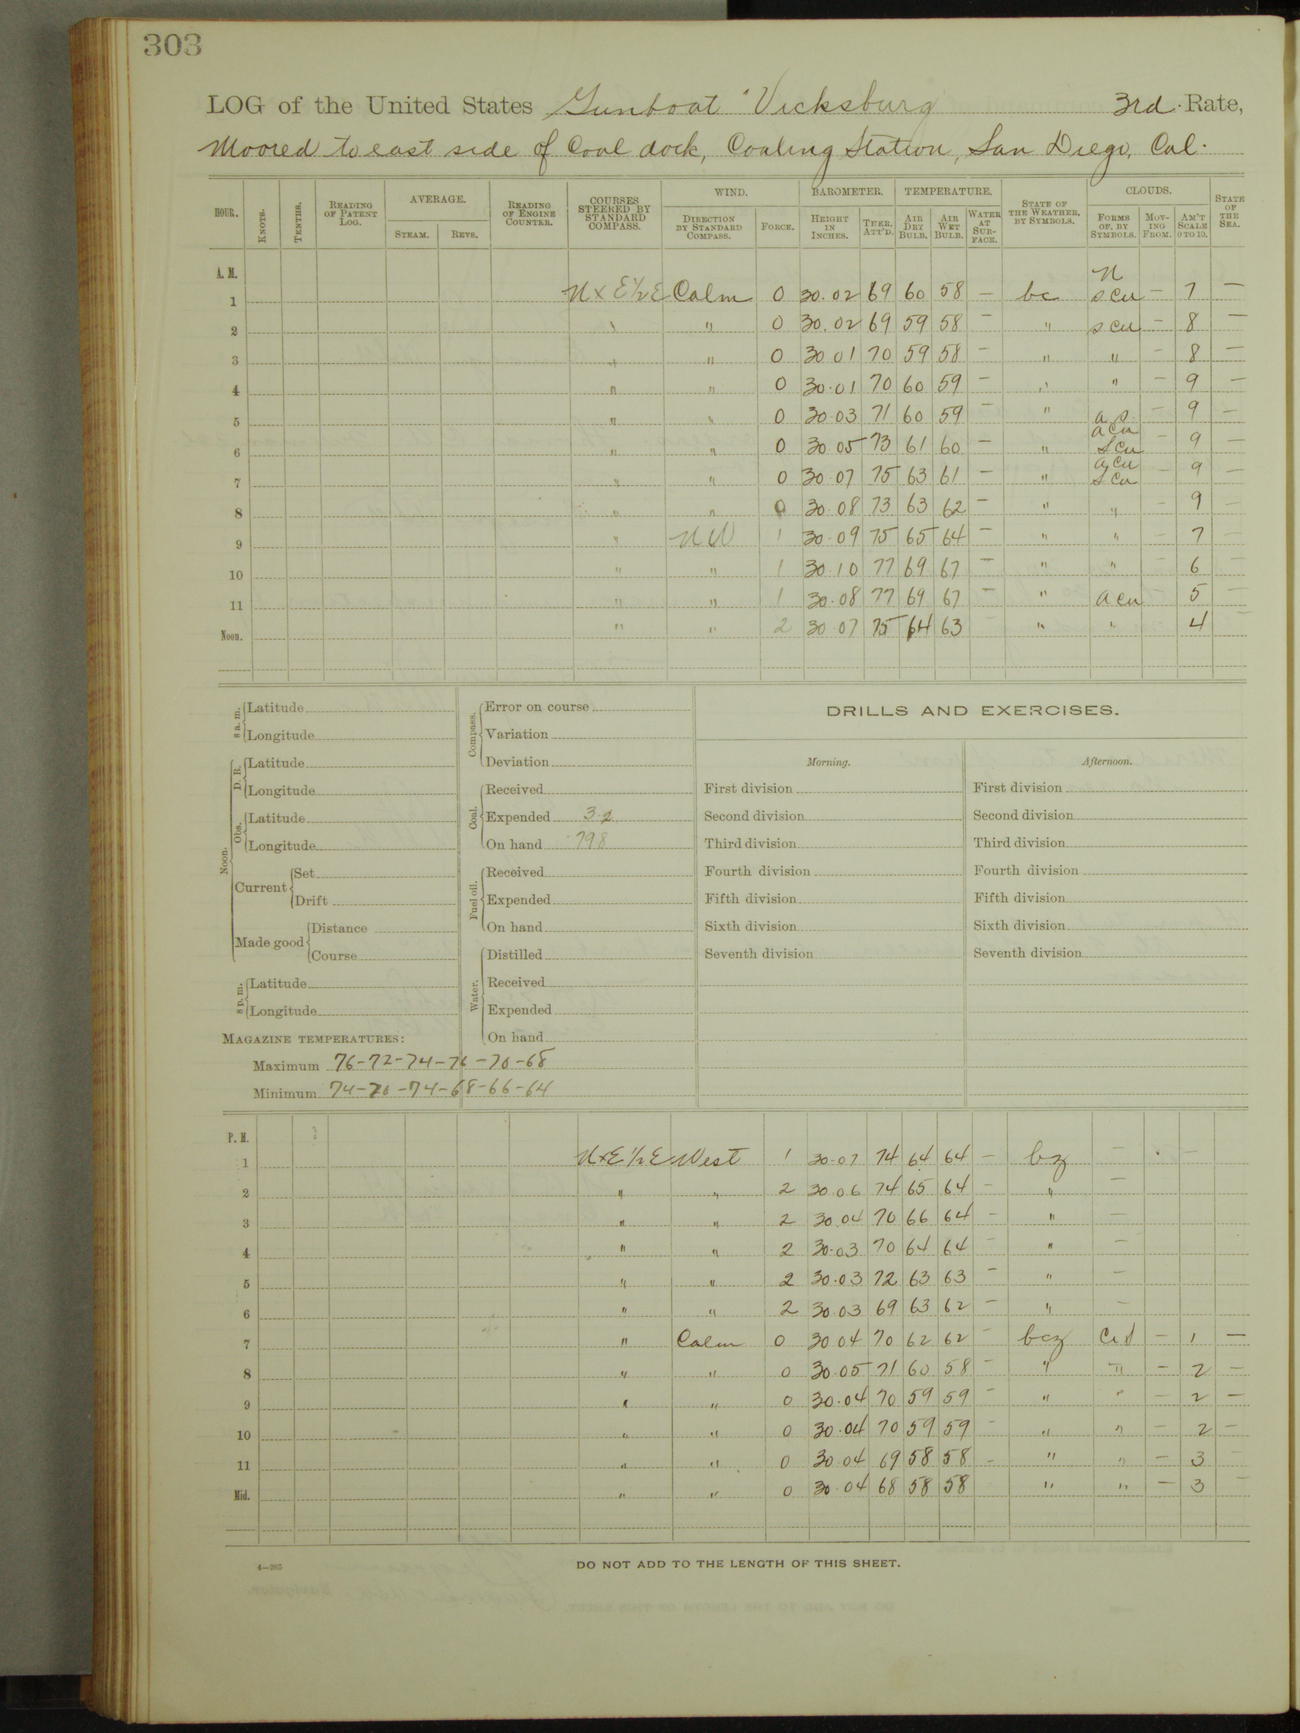 303
LOG of the United States Gunboat "Vicksburg 3rd Rate,
Moored to east side of Coal dock, Coaling Station, San Diego, Cal.
HOUR. KNOTS. TENTHS. READING OF PATENT LOG. AVERAGE. STEAM. REVS. READING OF ENGINE COUNTER. COURSES STEERED BY STANDARD COMPASS. WIND. DIRECTION BY STANDARD COMPASS. FORCE. BAROMETER. HEIGHT IN INCHES. THER. ATT'D. TEMPERATURE. AIR DRY BULB. AIR WET BULB. WATER AT SURFACE. STATE OF THE WEATHER, BY SYMBOLS. CLOUDS. FORMS OF, BY SYMBOLS. MOVING FROM. AM'T SCALE 0 TO 10. STATE OF THE SEA.
A. M. N
1 NxE½E Calm 0 30.02 69 60 58 — bc s cu — 7 —
2 " " 0 30.02 69 59 58 — " s cu — 8 —
3 " " 0 30 01 70 59 58 — " " — 8 —
4 " " 0 30.01 70 60 59 — " " — 9 —
5 " " 0 30.03 71 60 59 — " a s — 9 —
6 " " 0 30 05 73 61 60 — " a cu s cu — 9 —
7 " " 0 30.07 75 63 61 — " a cu s cu — 9 —
8 " " 0 30.08 73 63 62 — " " — 9 —
9 " NW 1 30.09 75 65 64 — " " — 7 —
10 " " 1 30 10 77 69 67 — " " — 6 —
11 " " 1 30.08 77 69 67 — " a cu 5 —
Noon. " " 2 30 07 75 64 63 " " 4 —
8 a. m. Latitude
Longitude
Noon. D. R. Latitude
Longitude
Obs. Latitude
Longitude
Current Set
Drift
Made good Distance
Course
8 p. m. Latitude
Longitude
MAGAZINE TEMPERATURES:
Maximum 76-72-74-76-70-68
Minimum 74-70-74-68-66-64
Compass. Error on course
Variation
Deviation
Coal. Received
Expended 3.2
On hand 798
Fuel oil. Received
Expended
On hand
Water. Distilled
Received
Expended
On hand
DRILLS AND EXERCISES.
Morning. Afternoon.
First division First division
Second division Second division
Third division Third division
Fourth division Fourth division
Fifth division Fifth division
Sixth division Sixth division
Seventh division Seventh division
P. M.
1 NxE½E West 1 30.07 74 64 64 — bz — —
2 " " 2 30 06 74 65 64 — " —
3 " " 2 30.04 70 66 64 — " —
4 " " 2 30.03 70 64 64 — " —
5 " " 2 30.03 72 63 63 — " —
6 " " 2 30.03 69 63 62 — " —
7 " Calm 0 30 04 70 62 62 — bcz — 1 —
8 " " 0 30.05 71 60 58 — " " — 2 —
9 " " 0 30.04 70 59 59 — " " — 2 —
10 " " 0 30.04 70 59 59 — " " — 2 —
11 " " 0 30 04 69 58 58 — " " — 3
Mid. " " 0 30.04 68 58 58 " " — 3 —
4—265
DO NOT ADD TO THE LENGTH OF THIS SHEET.